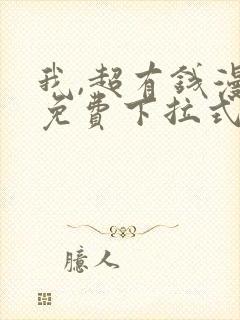 我,超有钱漫
免费下拉式
臆人